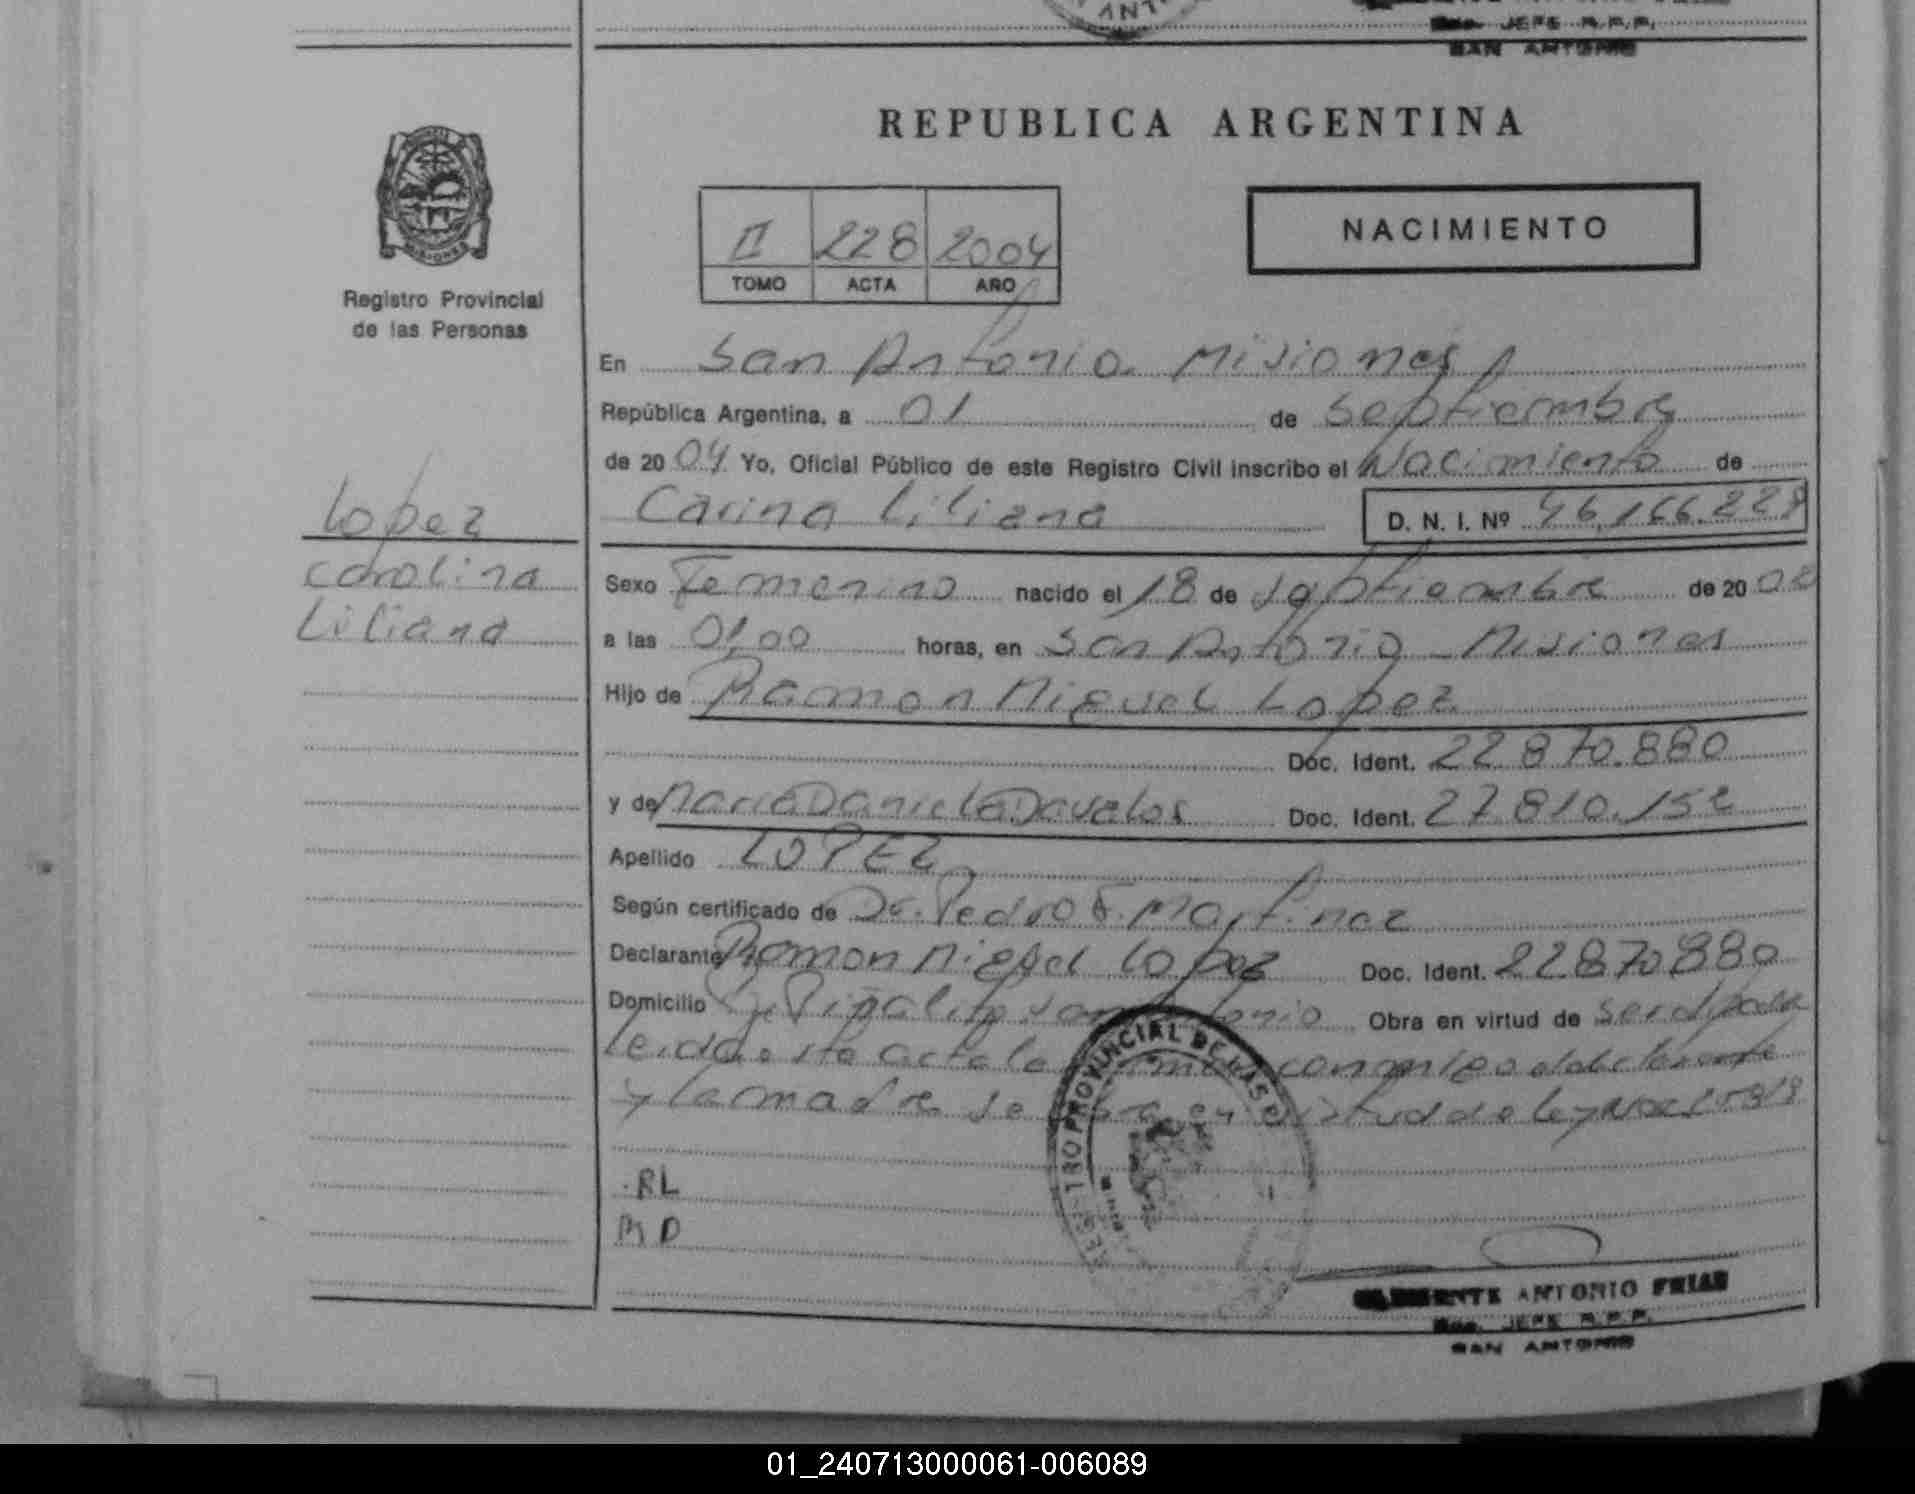 JEFE R.P.P.
SAN ANTONIO
REPUBLICA ARGENTINA
MISIONES
Registro Provincial
de las Personas
II 228 2004
TOMO ACTA AÑO
NACIMIENTO
En San Antonio Misiones
República Argentina, a 01 de Septiembre
de 2004 Yo, Oficial Público de este Registro Civil inscribo el Nacimiento de
Carina Liliana D. N. I. Nº 46.166.228
Lopez
Carolina
Liliana
Sexo Femenino nacido el 18 de septiembre de 2002
a las 01,00 horas, en San Antonio - Misiones
Hijo de Ramon Miguel Lopez
Doc. Ident. 22.870.880
y de Maria Daniela Davalos Doc. Ident. 27.810.152
Apellido LOPEZ
Según certificado de Dr. Pedro F. Martinez
Declarante Ramon Miguel Lopez Doc. Ident. 22870880
Domicilio Piñalito San Antonio Obra en virtud de ser el padre
leida este acta la conmigo el declarante
y la madre se en virtud de ley
REGISTRO PROVINCIAL DE LAS
RL
MD
CLEMENTE ANTONIO FRIAS
JEFE R.P.P.
SAN ANTONIO
01_240713000061-006089